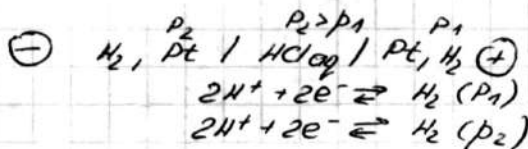 P₂ P₂>P₁ P₁
⊖ H₂, Pt / HClaq / Pt, H₂ ⊕
2H⁺ + 2e⁻ ⇄ H₂ (P₁)
2H⁺ + 2e⁻ ⇄ H₂ (p₂)